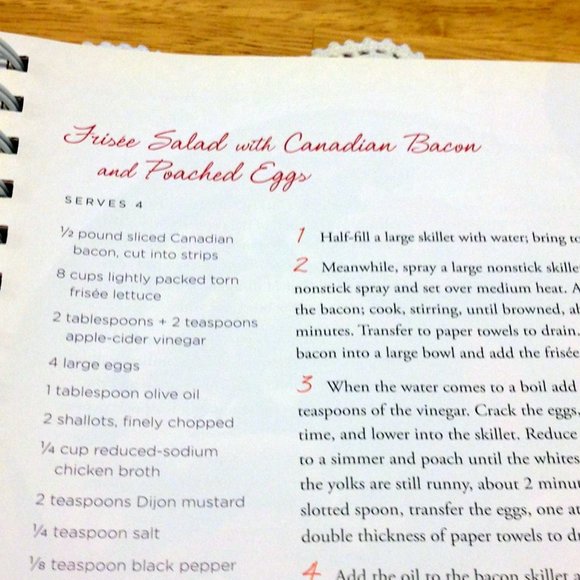 Frisée Salad with Canadian Bacon
and Poached Eggs
SERVES 4
½ pound sliced Canadian
bacon, cut into strips
8 cups lightly packed torn
frisée lettuce
2 tablespoons + 2 teaspoons
apple-cider vinegar
4 large eggs
1 tablespoon olive oil
2 shallots, finely chopped
¼ cup reduced-sodium
chicken broth
2 teaspoons Dijon mustard
¼ teaspoon salt
⅛ teaspoon black pepper
1 Half-fill a large skillet with water; bring to
2 Meanwhile, spray a large nonstick skille
nonstick spray and set over medium heat. A
the bacon; cook, stirring, until browned, ab
minutes. Transfer to paper towels to drain.
bacon into a large bowl and add the frisée
3 When the water comes to a boil add
teaspoons of the vinegar. Crack the eggs,
time, and lower into the skillet. Reduce
to a simmer and poach until the whites
the yolks are still runny, about 2 minu
slotted spoon, transfer the eggs, one at
double thickness of paper towels to d
4 Add the oil to the bacon skillet a